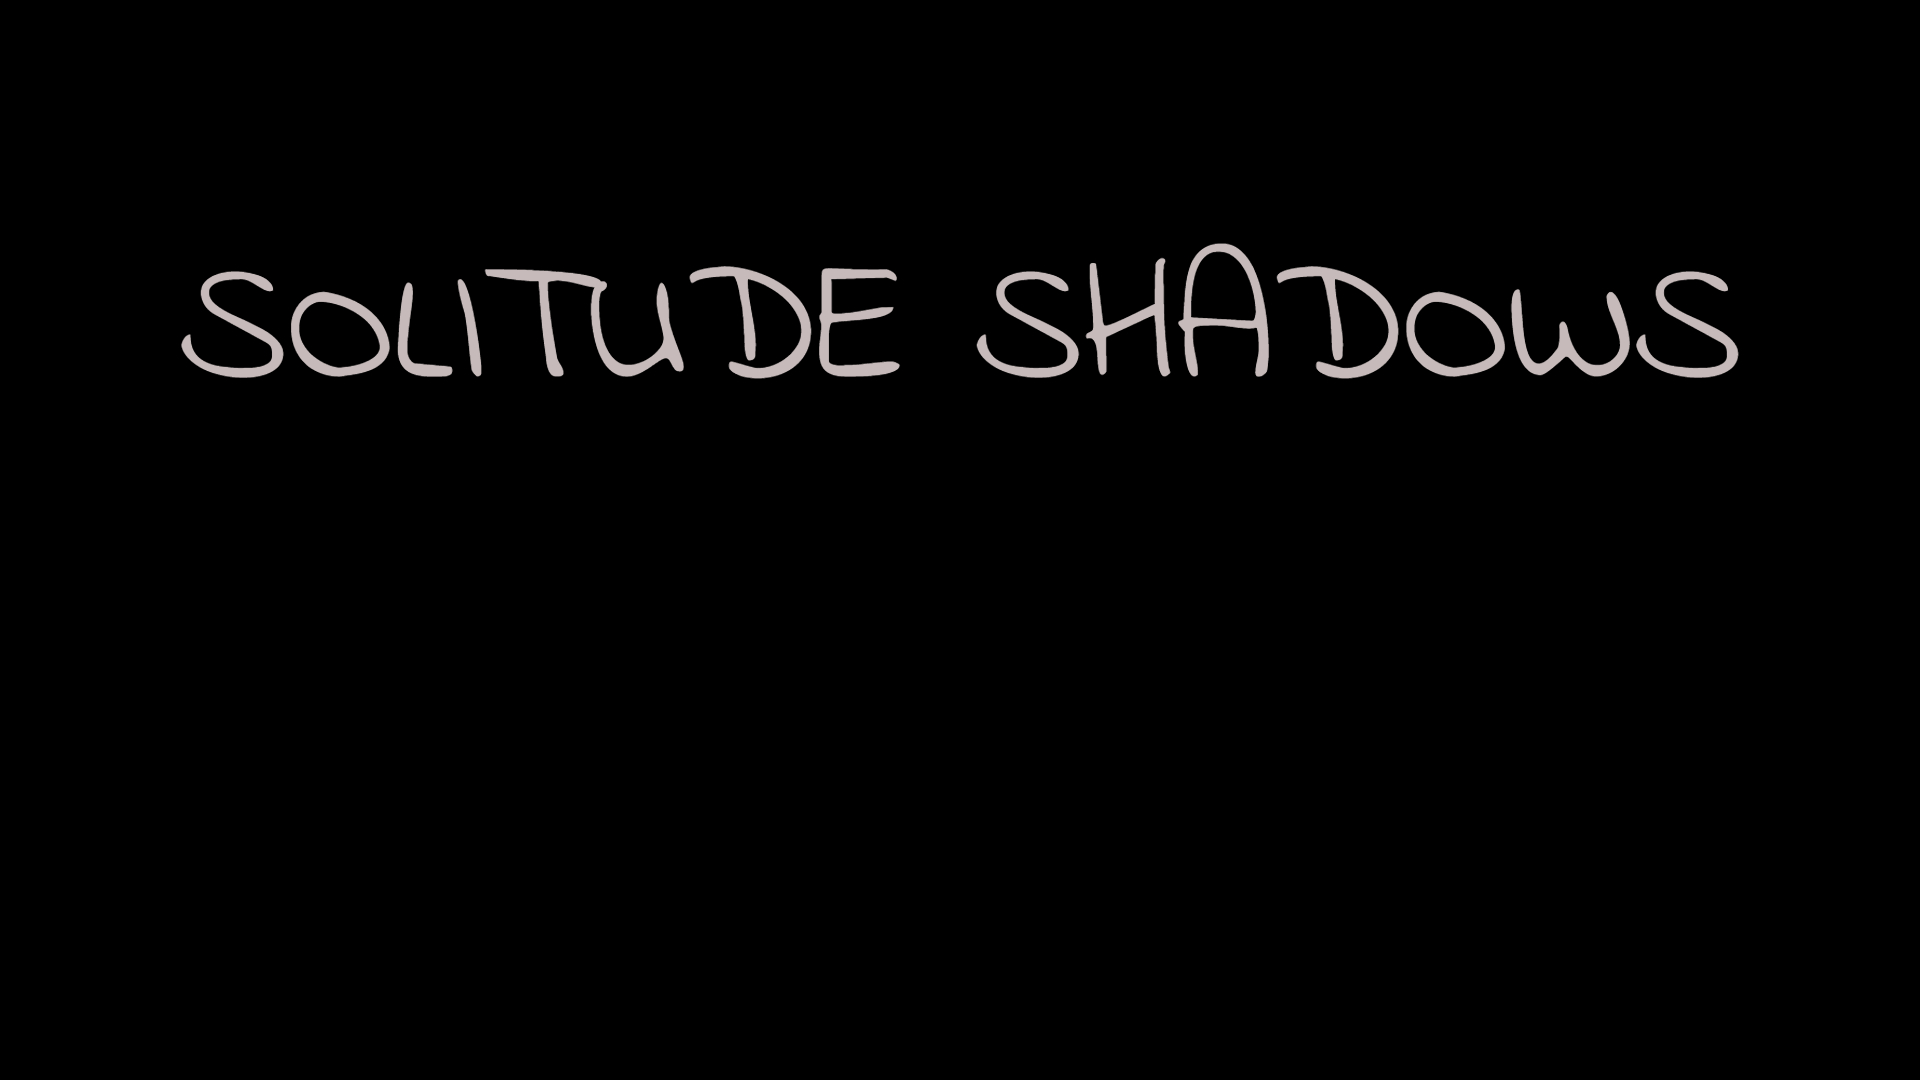 SOLITUDE SHADOWS